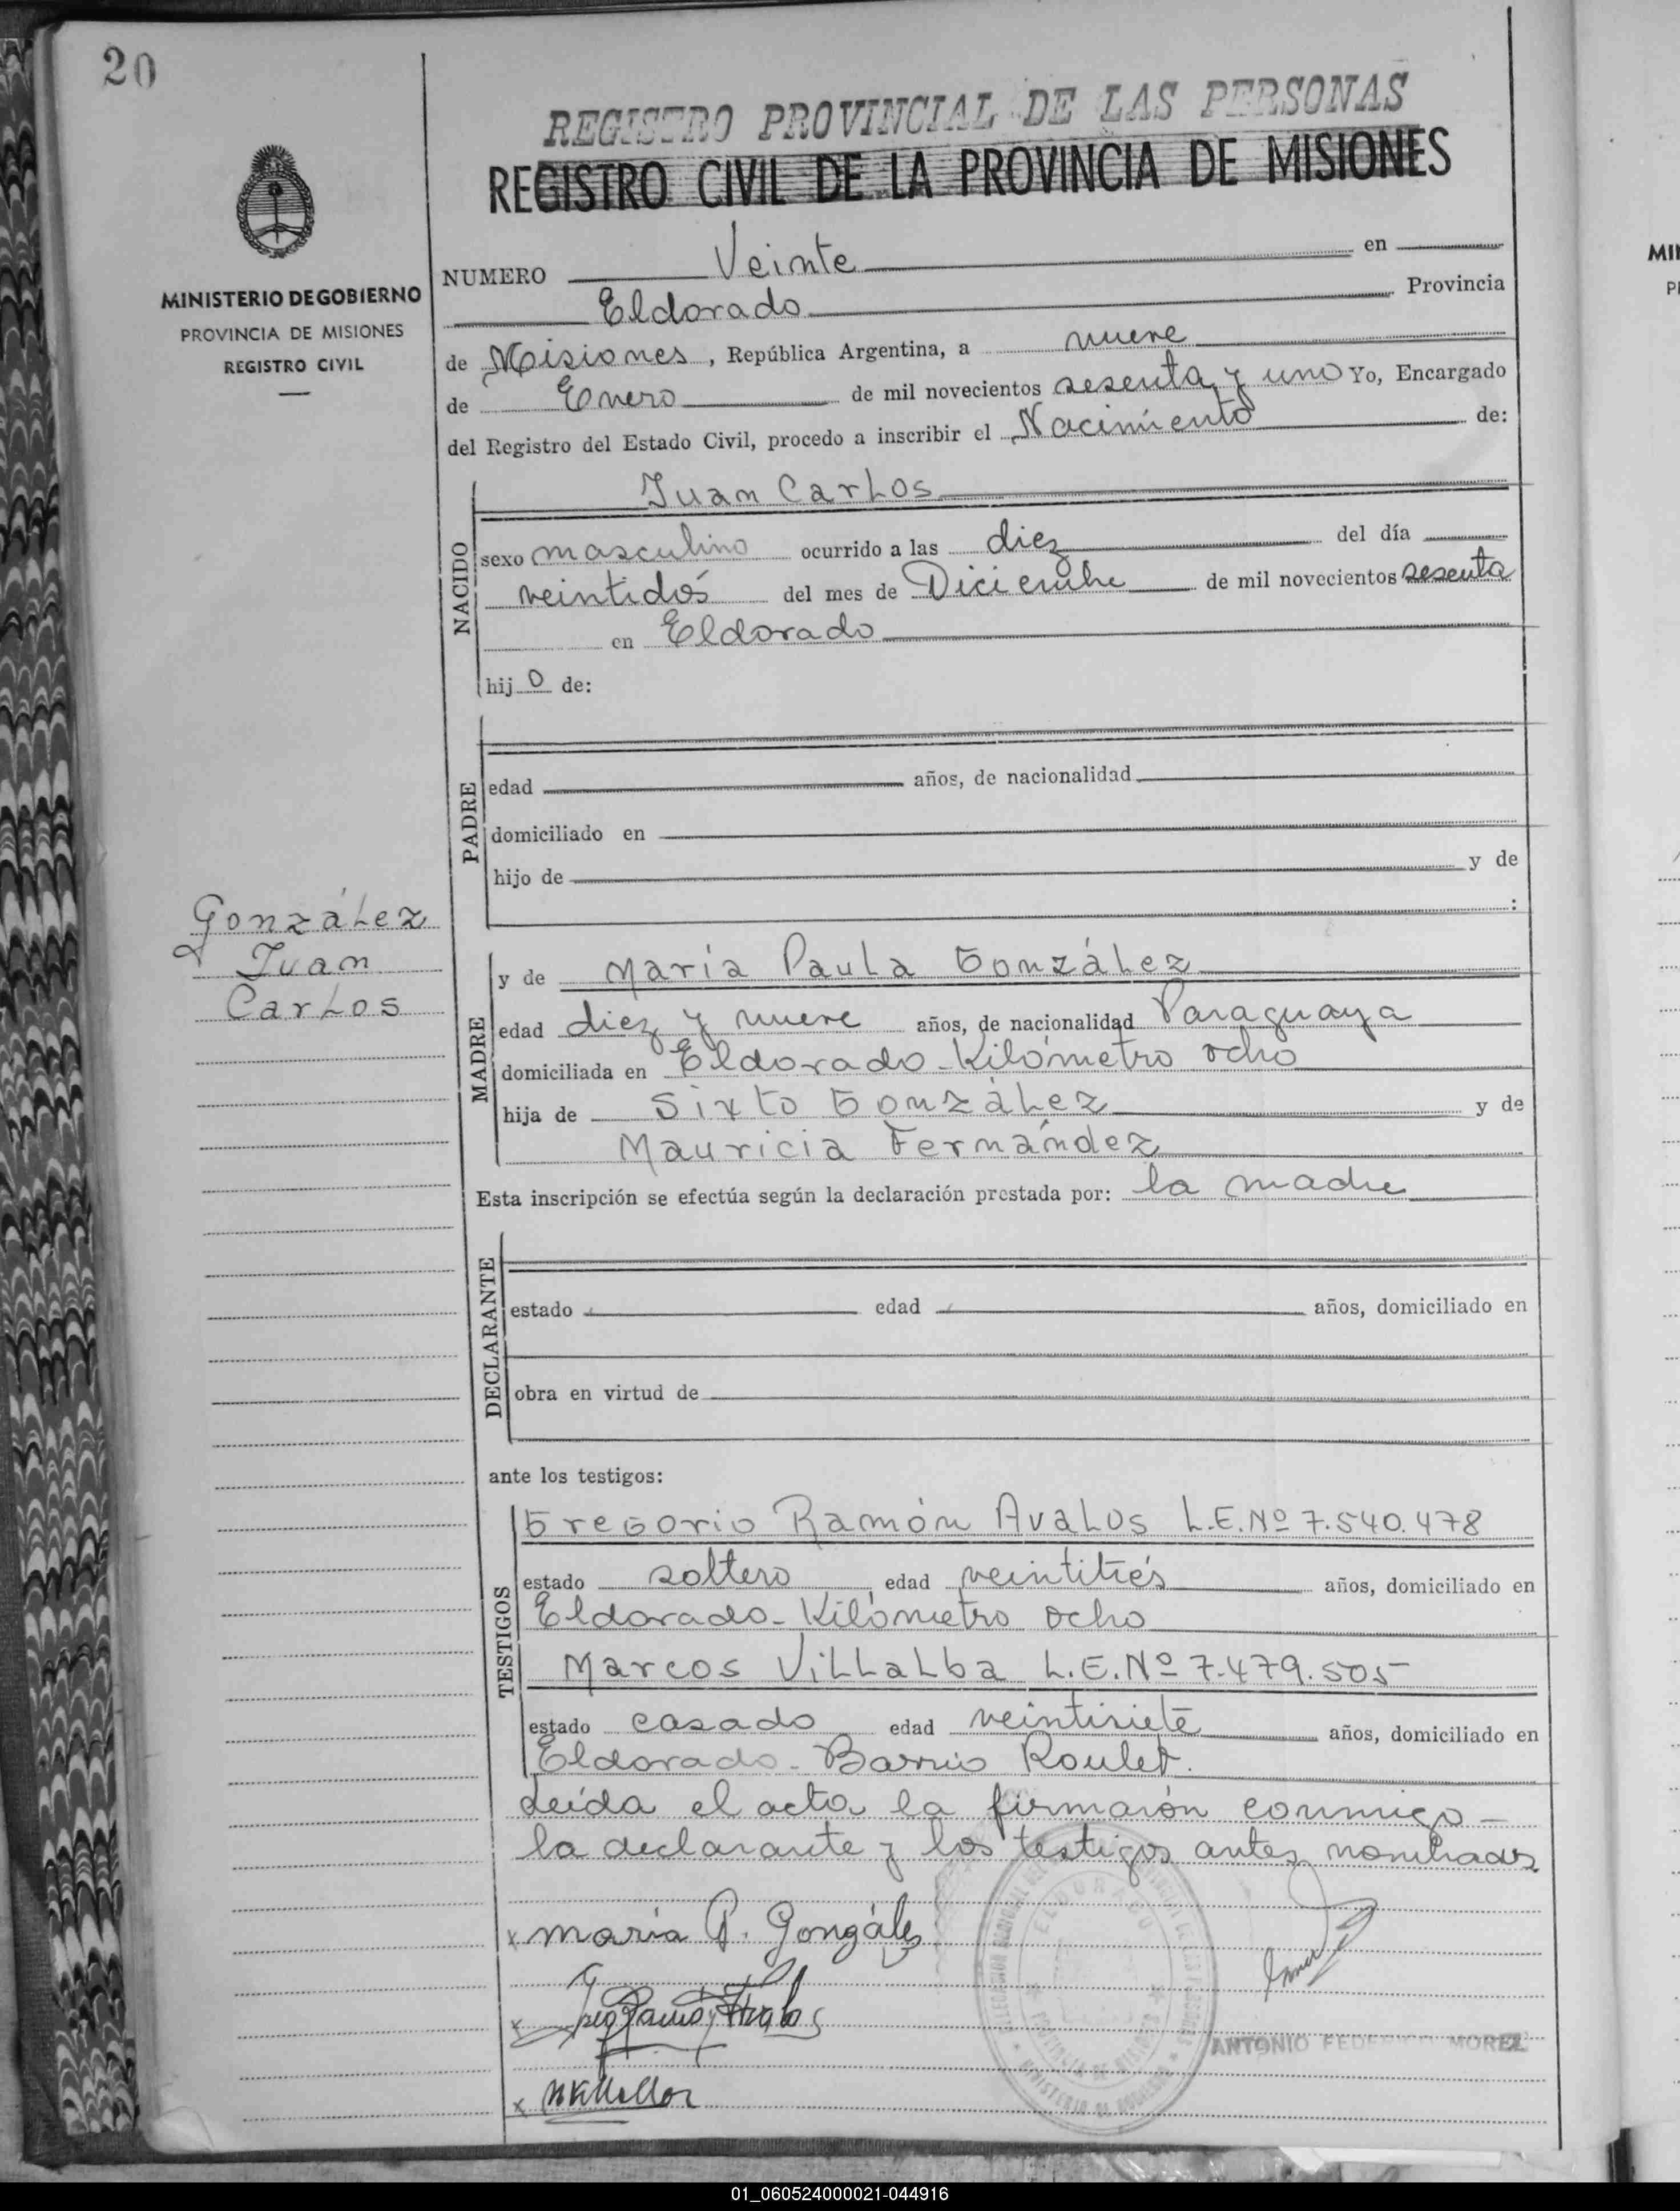 20
REGISTRO PROVINCIAL DE LAS PERSONAS
REGISTRO CIVIL DE LA PROVINCIA DE MISIONES
MINISTERIO DE GOBIERNO
PROVINCIA DE MISIONES
REGISTRO CIVIL
NUMERO Veinte en
Eldorado Provincia
de Misiones, República Argentina, a nueve
de Enero de mil novecientos sesenta y uno Yo, Encargado
del Registro del Estado Civil, procedo a inscribir el Nacimiento de:
NACIDO
Juan Carlos
sexo masculino ocurrido a las diez del día
veintidós del mes de Diciembre de mil novecientos sesenta
en Eldorado
hij o de:
PADRE
edad años, de nacionalidad
domiciliado en
hijo de y de
:
González
Juan
Carlos
MADRE
y de María Paula González
edad diez y nueve años, de nacionalidad Paraguaya
domiciliada en Eldorado-Kilómetro ocho
hija de Sixto González y de
Mauricia Fernández
Esta inscripción se efectúa según la declaración prestada por: la madre
DECLARANTE
estado edad años, domiciliado en
obra en virtud de
ante los testigos:
TESTIGOS
Gregorio Ramón Avalos L.E.Nº 7.540.478
estado soltero edad veintitrés años, domiciliado en
Eldorado-Kilómetro ocho
Marcos Villalba L.E.Nº 7.479.505
estado casado edad veintisiete años, domiciliado en
Eldorado-Barrio Roulet.
Leída el acta la firmarón conmigo-
la declarante y los testigos antes nombrados
x maría P. Gonzáles
x
x
ELDORADO
PROVINCIA DE MISIONES
MINISTERIO DE GOBIERNO
ANTONIO FEDERICO MOREL
MI
P
01_060524000021-044916